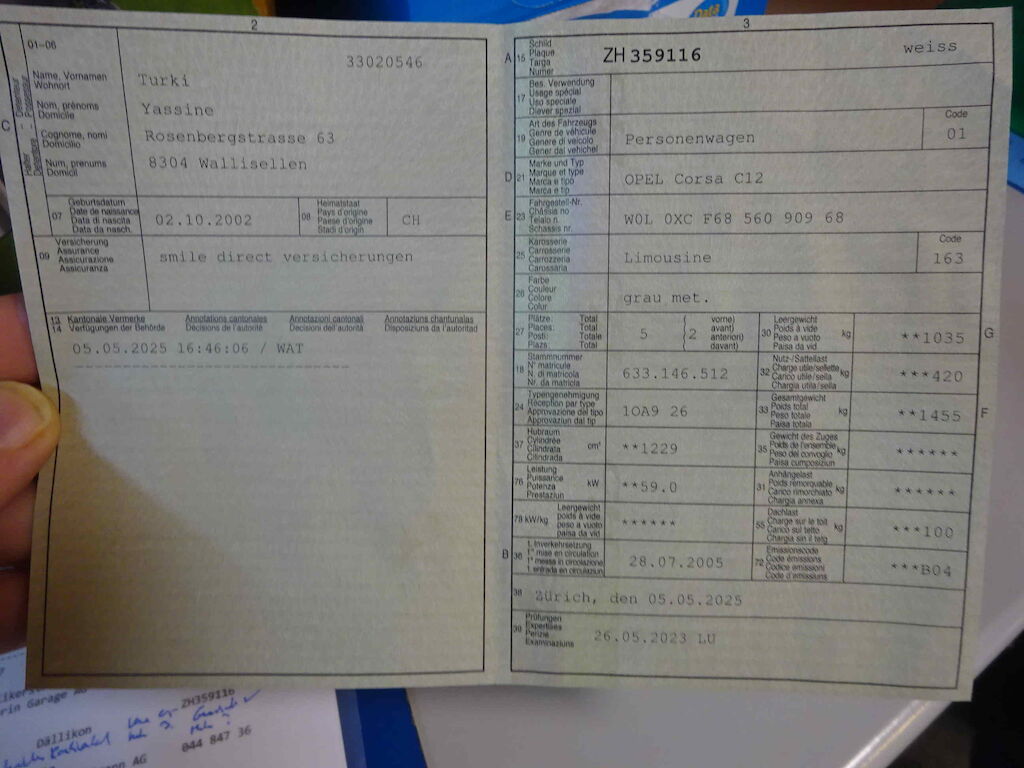 2
01-06
33020546
C
Name, Vornamen
Wohnort
Nom, prénoms
Domicile
Cognome, nomi
Domicilio
Num, prenums
Domicil
Turki
Yassine
Rosenbergstrasse 63
8304 Wallisellen
07 Geburtsdatum
Date de naissance
Data di nascita
Data da nasch.
02.10.2002
08 Heimatstaat
Pays d'origine
Paese d'origine
Stadi d'origin
CH
09 Versicherung
Assurance
Assicurazione
Assicuranza
smile direct versicherungen
13 Kantonale Vermerke Annotations cantonales Annotazioni cantonali Annotaziuns chantunalas
14 Verfügungen der Behörde Décisions de l'autorité Decisioni dell'autorità Disposiziuns da l'autoritad
05.05.2025 16:46:06 / WAT
3
A 15 Schild
Plaque
Targa
Numer
ZH 359116 weiss
17 Bes. Verwendung
Usage spécial
Uso speciale
Diever spezial
19 Art des Fahrzeugs
Genre de véhicule
Genere di veicolo
Gener dal vehichel
Personenwagen
Code
01
D 21 Marke und Typ
Marque et type
Marca e tipo
Marca e tip
OPEL Corsa C12
E 23 Fahrgestell-Nr.
Châssis no
Telaio n.
Schassis nr.
W0L 0XC F68 560 909 68
25 Karosserie
Carrosserie
Carrozzeria
Carossaria
Limousine
Code
163
26 Farbe
Couleur
Colore
Colur
grau met.
27 Plätze: Total
Places: Total
Posti: Totale
Plazs: Total
5 ( 2
vorne)
avant)
anteriori)
davant)
30 Leergewicht
Poids à vide
Peso a vuoto
Paisa da vid
kg
**1035
G
18 Stammnummer
N° matricule
N. di matricola
Nr. da matricla
633.146.512
32 Nutz-/Sattellast
Charge utile/sellette
Carico utile/sella
Chargia utila/sella
kg
***420
24 Typengenehmigung
Réception par type
Approvazione del tipo
Approvaziun dal tip
1OA9 26
33 Gesamtgewicht
Poids total
Peso totale
Paisa totala
kg
**1455
F
37 Hubraum
Cylindrée
Cilindrata
Cilindrada
cm³
**1229
35 Gewicht des Zuges
Poids de l'ensemble
Peso del convoglio
Paisa cumposiziun
kg
******
76 Leistung
Puissance
Potenza
Prestaziun
kW
**59.0
31 Anhängelast
Poids remorquable
Carico rimorchiato
Chargia annexa
kg
******
78 kW/kg Leergewicht
poids à vide
peso a vuoto
paisa da vid
******
55 Dachlast
Charge sur le toit
Carico sul tetto
Chargia sin il tetg
kg
***100
B 36 1. Inverkehrsetzung
1re mise en circulation
1a messa in circolazione
1. entrada en circulaziun
28.07.2005
72 Emissionscode
Code émissions
Codice emissioni
Code d'emissiuns
***B04
38 Zürich, den 05.05.2025
39 Prüfungen
Expertises
Perizie
Examinaziuns
26.05.2023 LU
Garage AG
ZH359116
Dällikon
044 847 36
AG